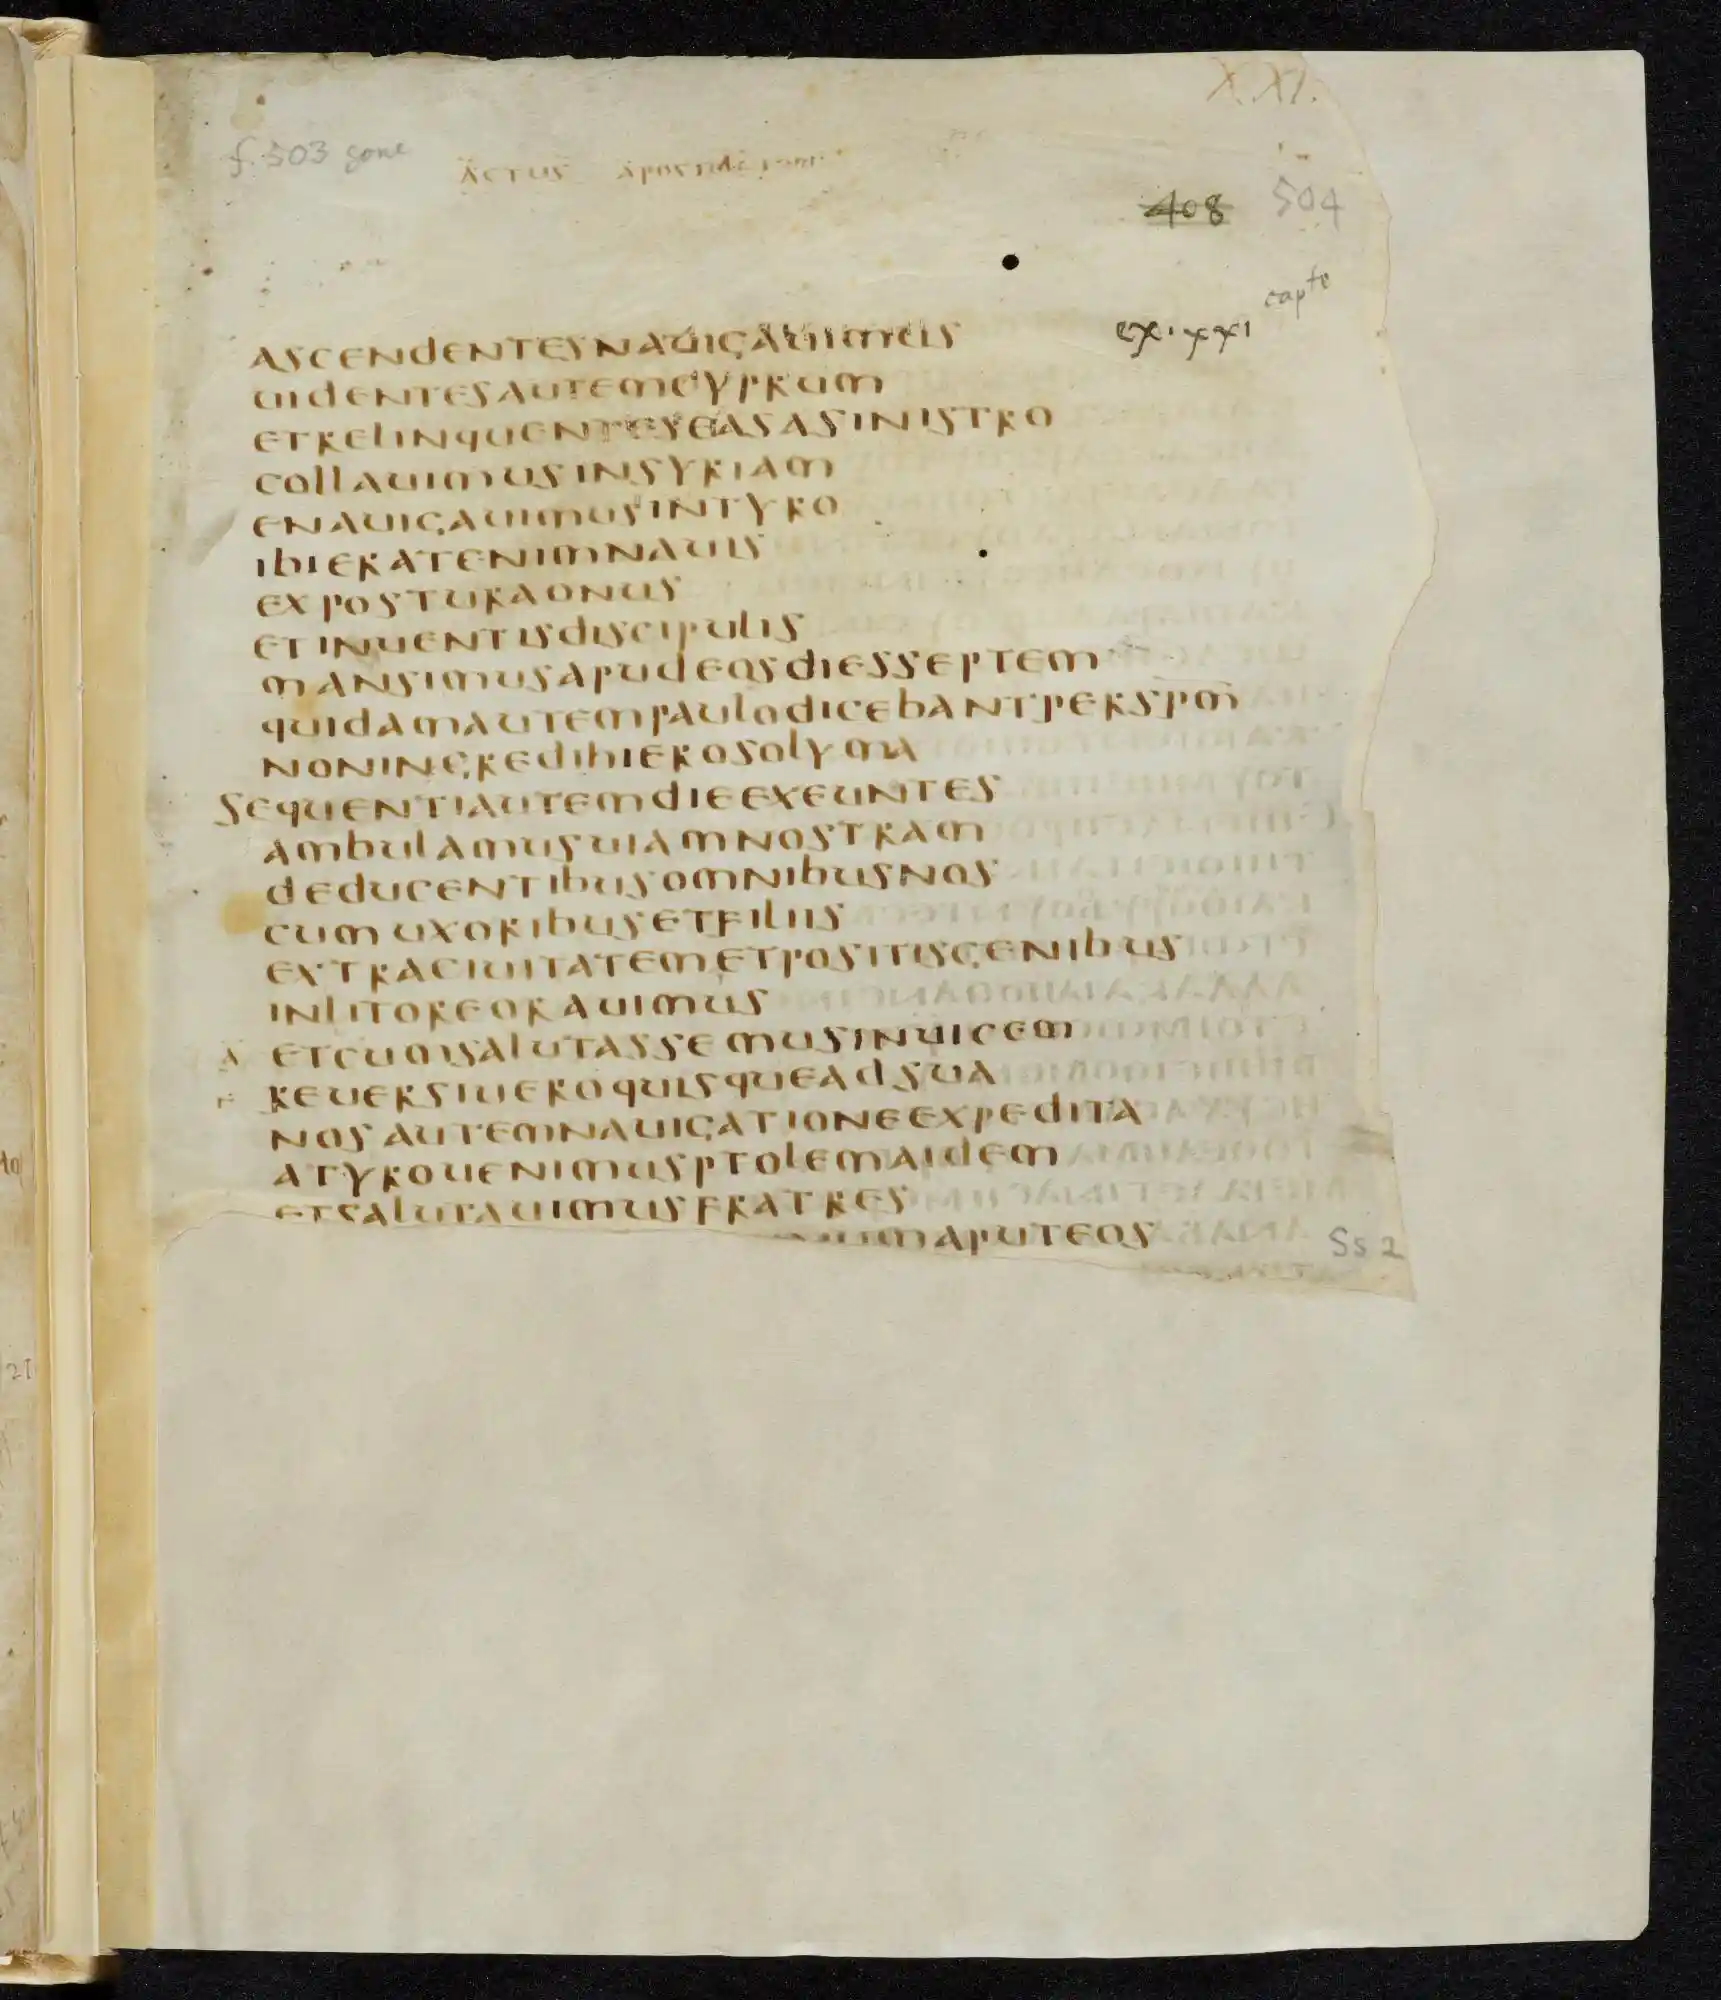 X.XI.
f. 503 gone
ACTUS APOSTOLORUM
408 504
capte
ex·xxi
ASCENDENTESNAUIGAUIMUS
UIDENTESAUTEMCYPRUM
ETRELINQUENTESEASASINISTRO
COLLAUIMUSINSYRIAM
ENAUIGAUIMUSINTYRO
IBIERATENIMNAUIS
EXPOSTURAONUS
ETINUENTISDISCIPULIS
MANSIMUSAPUDEOSDIESSEPTEM
QUIDAMAUTEMPAULODICEBANTPERSPM
NONINGREDIHIEROSOLYMA
SEQUENTIAUTEMDIEEXEUNTES
AMBULAMUSUIAMNOSTRAM
DEDUCENTIBUSOMNIBUSNOS
CUMUXORIBUSETFILIIS
EXTRACIUITATEMETPOSITISGENIBUS
INLITOREORAUIMUS
ETCUMSALUTASSEMUSINUICEM
REUERSIUEROQUISQUEADSUA
NOSAUTEMNAUIGATIONEEXPEDITA
ATYROUENIMUSPTOLEMAIDEM
ETSALUTAUIMUSFRATRES
APUTEOS
Ss 2